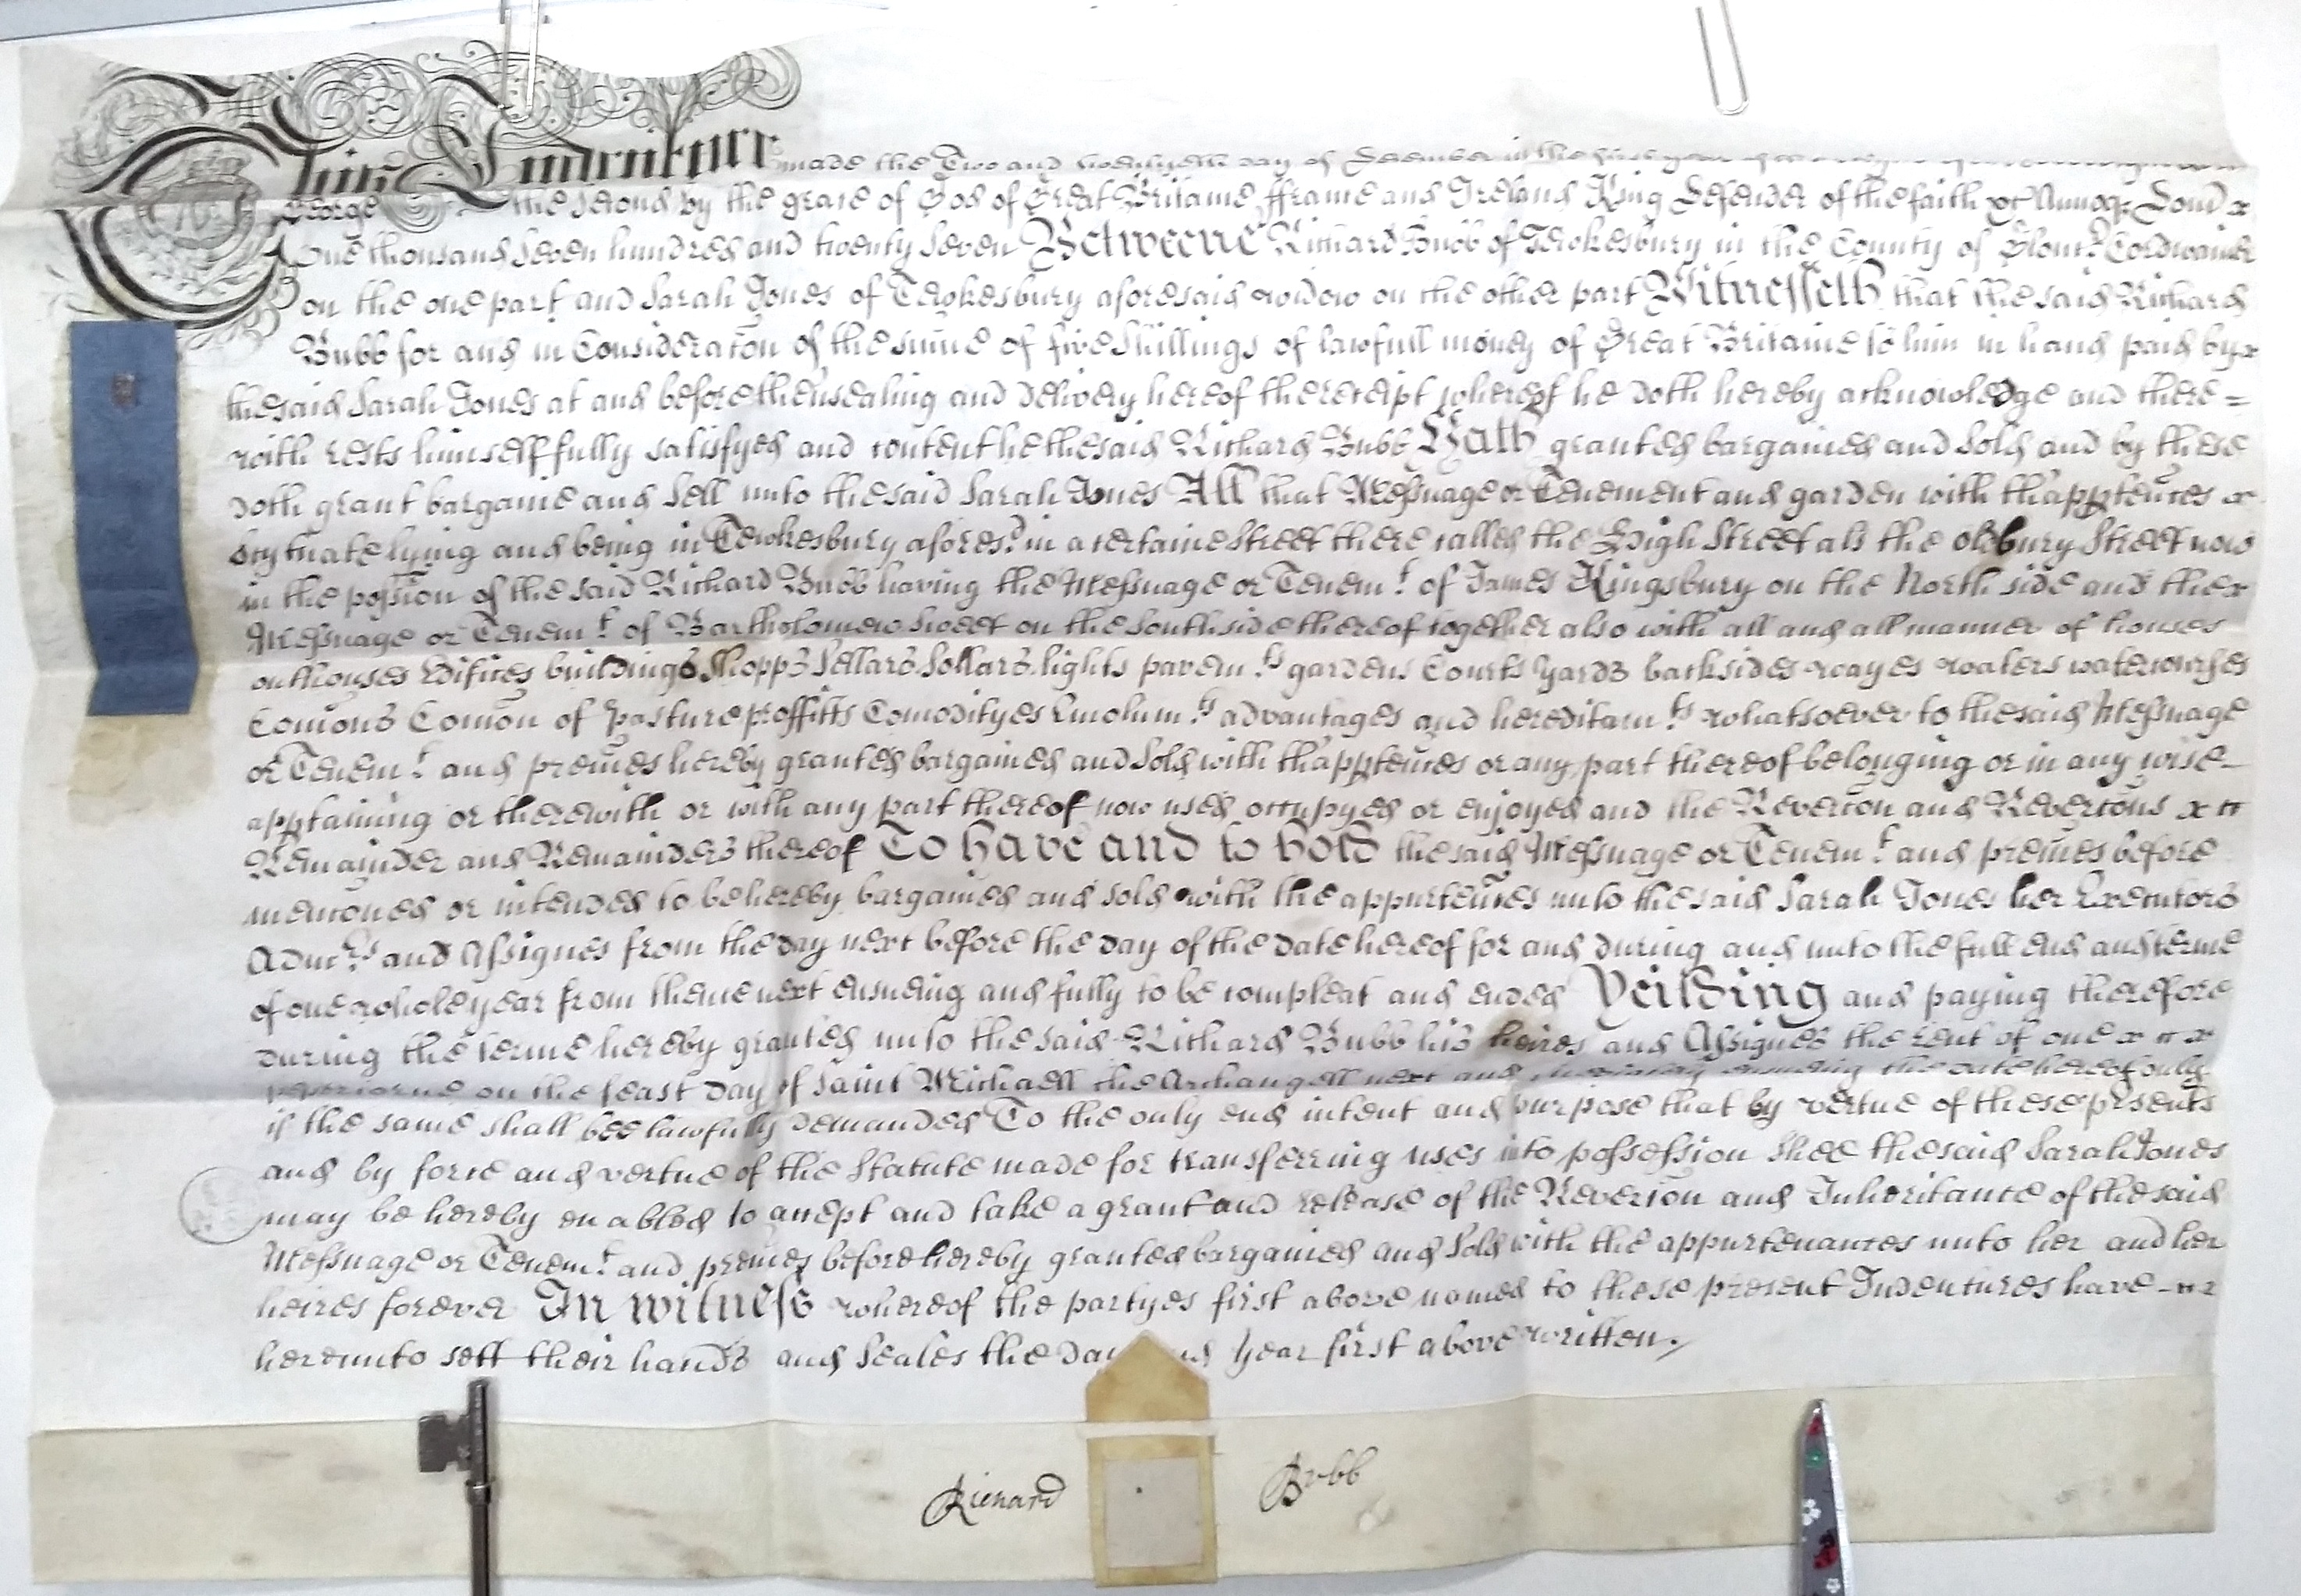 This Indenture made the Two and twentyeth day of December in the first year of the
George the second by the grace of God of Great Britaine ffrance and Ireland King Defender of the faith &c Annoq; Domi x
One thousand Seven hundred and twenty Seven Betweene Richard Bubb of Tewkesbury in the County of Glouc.r Cordwainer
on the one part and Sarah Jones of Tewkesbury aforesaid widow on the other part Witnesseth that the said Richard
Bubb for and in Consideracon of the sume of five Shillings of lawfull money of Great Britaine to him in hand paid by x
the said Sarah Jones at and before thensealing and delivery hereof the receipt whereof he doth hereby acknowledge and there =
with rests himselfe fully satisfyed and content he the said Richard Bubb Hath granted bargained and Sold and by these
doth grant bargaine and Sell unto the said Sarah Jones All that Messuage or Tenement and garden with thapptences x
scytuate lying and being in Tewkesbury afores.d in a certaine Street there called the High Street als the oldbury Street now
in the possion of the said Richard Bubb having the Messuage or Tenem.t of James Kingsbury on the North side and the x
Messuage or Tenem.t of Bartholomew Sweet on the South side thereof together also with all and all manner of houses
outhouses Edifices buildings Shopps Sellars Sollars lights pavem.ts gardens Courts yards backsides wayes waters watercourses
Comons Comon of Pasture proffitts Comodityes Emolum.ts advantages and hereditam.ts whatsoever to the said Messuage
or Tenem.t and premes hereby granted bargained and Sold with thapptences or any part thereof belonging or in any wise -
apptaining or therewith or with any part thereof now used occupyed or enjoyed and the Revercon and Revercons x
Remainder and Remainders thereof To have and to hold the said Messuage or Tenem.t and premes before
menconed or intended to be hereby bargained and sold with the appurtences unto the said Sarah Jones her Executors
Adm.rs and Assignes from the day next before the day of the date hereof for and during and unto the full end and terme
of one whole year from thence next ensueing and fully to be compleat and ended Yeilding and paying therefore
during the terme hereby granted unto the said Richard Bubb his heires and Assignes the rent of one x x
peppercorne on the feast day of Saint Michaell the Archangell next and ensueing the date hereof only
if the same shall bee lawfully demanded To the only end intent and purpose that by vertue of these psents
and by force and vertue of the Statute made for transferring uses into possession Shee the said Sarah Jones
may be hereby enabled to accept and take a grant and release of the Revercon and Inheritance of the said
Messuage or Tenem.t and premes before hereby granted bargained and Sold with the appurtenances unto her and her
heires forever In witness whereof the partyes first above named to these present Indentures have -
hereunto sett their hands and Seales the Day and Year first above written.
Richard Bubb